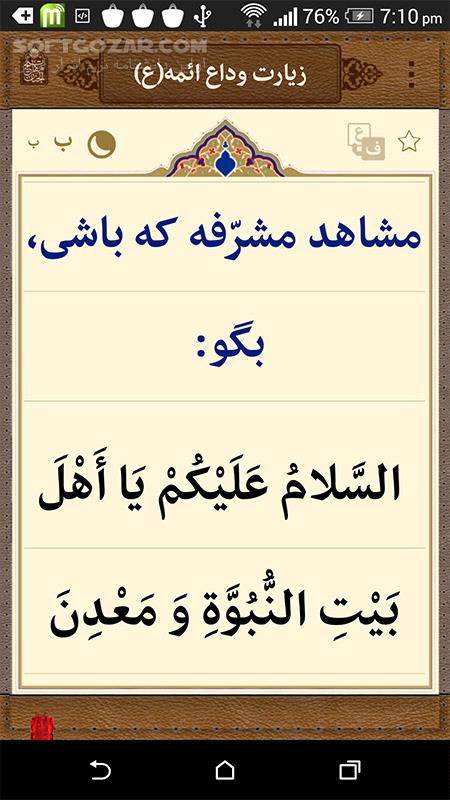 76% 7:10 pm
SOFTGOZAR.COM
زیارت وداع ائمه(ع)
ب ب
ع ف
مشاهد مشرّفه که باشی،
بگو:
السَّلامُ عَلَيْكُمْ يَا أَهْلَ
بَيْتِ النُّبُوَّةِ وَ مَعْدِنَ